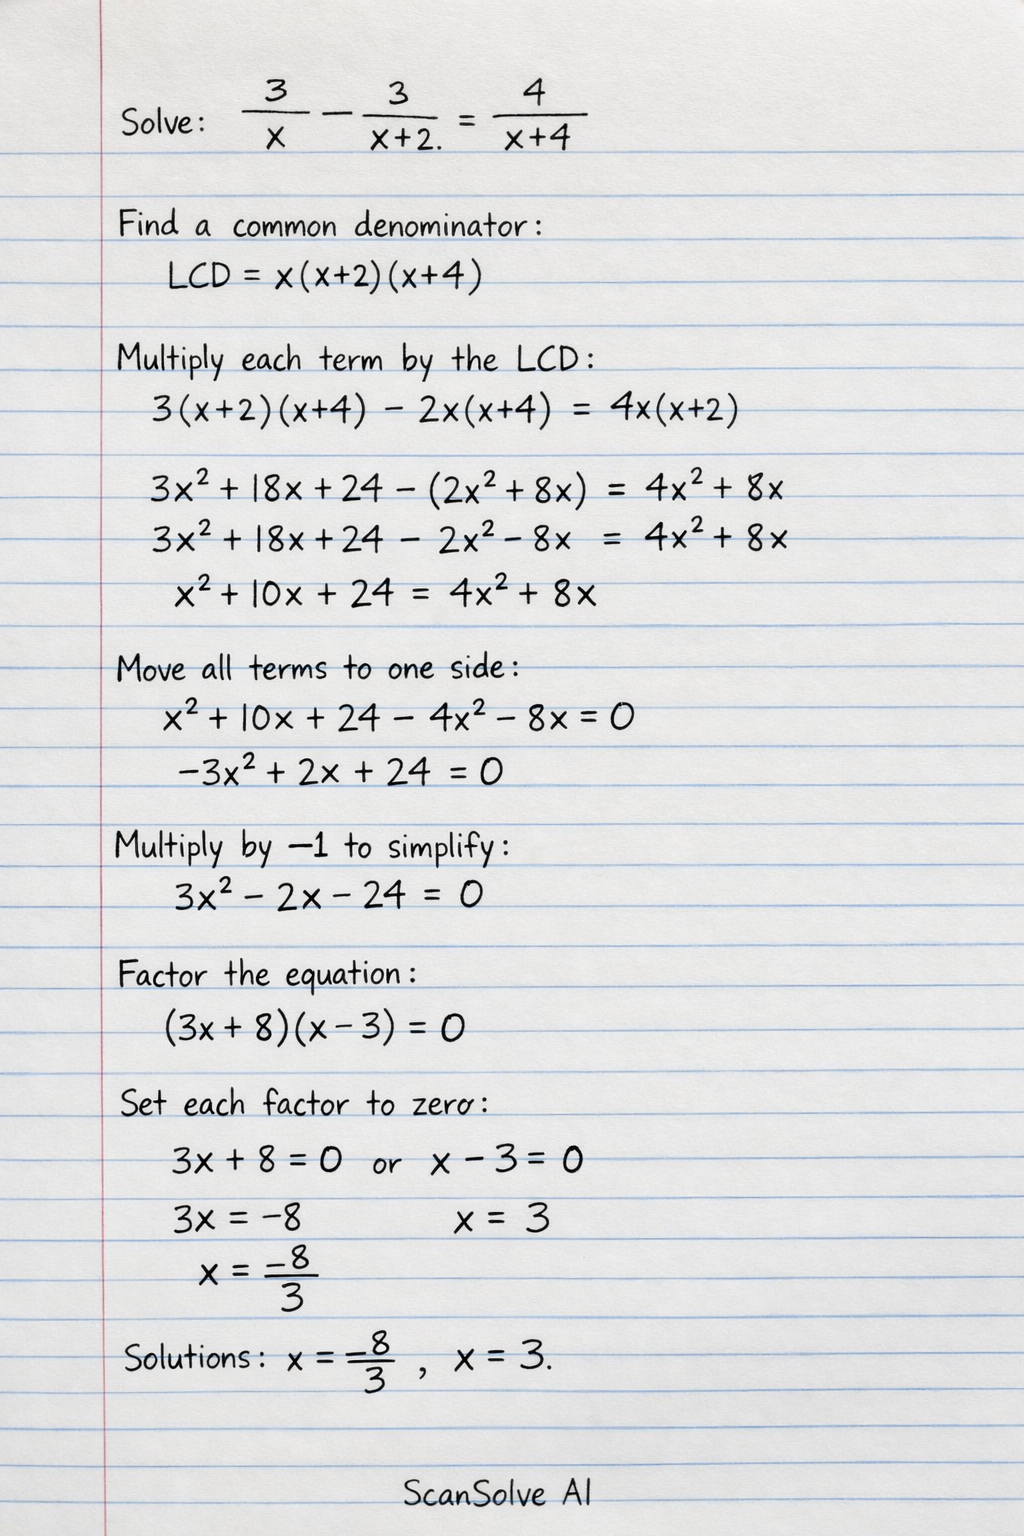 Solve: 3/x − 3/x+2. = 4/x+4
Find a common denominator:
LCD = x(x+2)(x+4)
Multiply each term by the LCD:
3(x+2)(x+4) − 2x(x+4) = 4x(x+2)
3x² + 18x + 24 − (2x² + 8x) = 4x² + 8x
3x² + 18x + 24 − 2x² − 8x = 4x² + 8x
x² + 10x + 24 = 4x² + 8x
Move all terms to one side:
x² + 10x + 24 − 4x² − 8x = 0
−3x² + 2x + 24 = 0
Multiply by −1 to simplify:
3x² − 2x − 24 = 0
Factor the equation:
(3x + 8)(x − 3) = 0
Set each factor to zero:
3x + 8 = 0 or x − 3 = 0
3x = −8 x = 3
x = −8/3
Solutions: x = −8/3 , x = 3.
ScanSolve AI